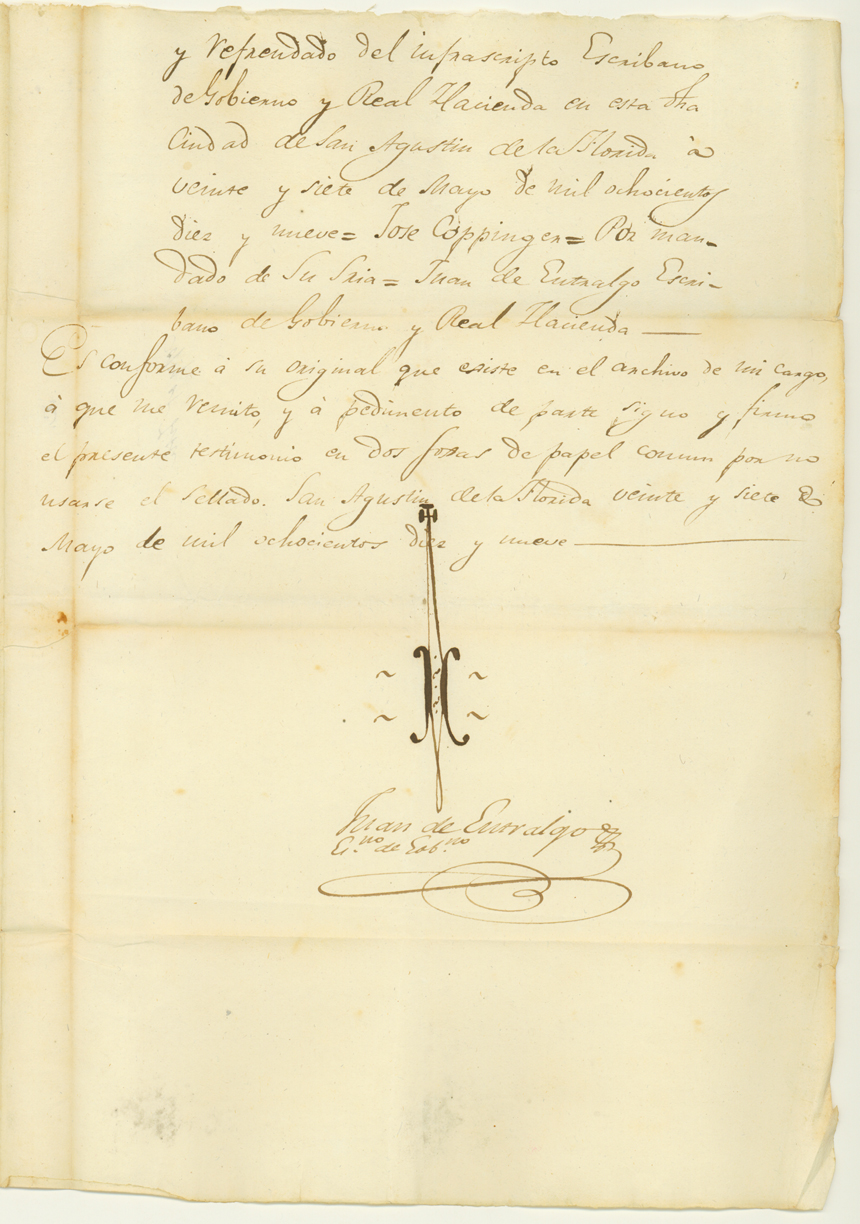 y refrendado del infrascripto Escribano
de Gobierno y Real Hacienda en esta dha
Ciudad de San Agustin de la Florida à
veinte y siete de Mayo de mil ochocientos
diez y nueve = Jose Coppinger = Por man-
dado de Su Sria = Juan de Entralgo Escri-
bano de Gobierno y Real Hacienda —
Es conforme à su original que existe en el archivo de mi cargo,
à que me remito, y à pedimento de parte signo y firmo
el presente testimonio en dos foxas de papel comun por no
usarse el sellado. San Agustin de la Florida veinte y siete de
Mayo de mil ochocientos diez y nueve —
Juan de Entralgo
Es.no de Gob.no